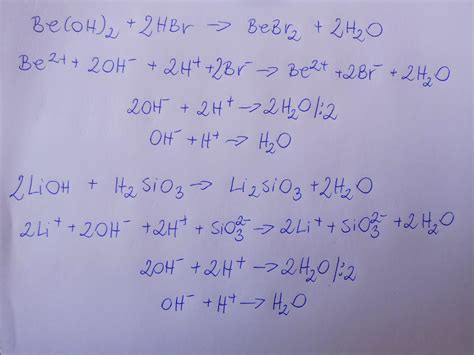 Be(OH)₂ + 2HBr → BeBr₂ + 2H₂O
Be²⁺ + 2OH⁻ + 2H⁺ + 2Br⁻ → Be²⁺ + 2Br⁻ + 2H₂O
2OH⁻ + 2H⁺ → 2H₂O /:2
OH⁻ + H⁺ → H₂O
2LiOH + H₂SiO₃ → Li₂SiO₃ + 2H₂O
2Li⁺ + 2OH⁻ + 2H⁺ + SiO₃²⁻ → 2Li⁺ + SiO₃²⁻ + 2H₂O
2OH⁻ + 2H⁺ → 2H₂O /:2
OH⁻ + H⁺ → H₂O